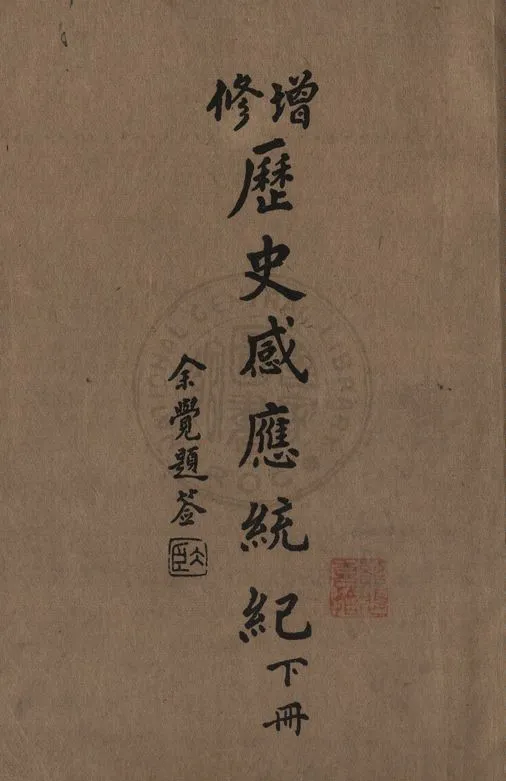 增修
歷史感應統紀
下冊
余覺題簽
NATIONAL CENTRAL LIBRARY
R.O.C.